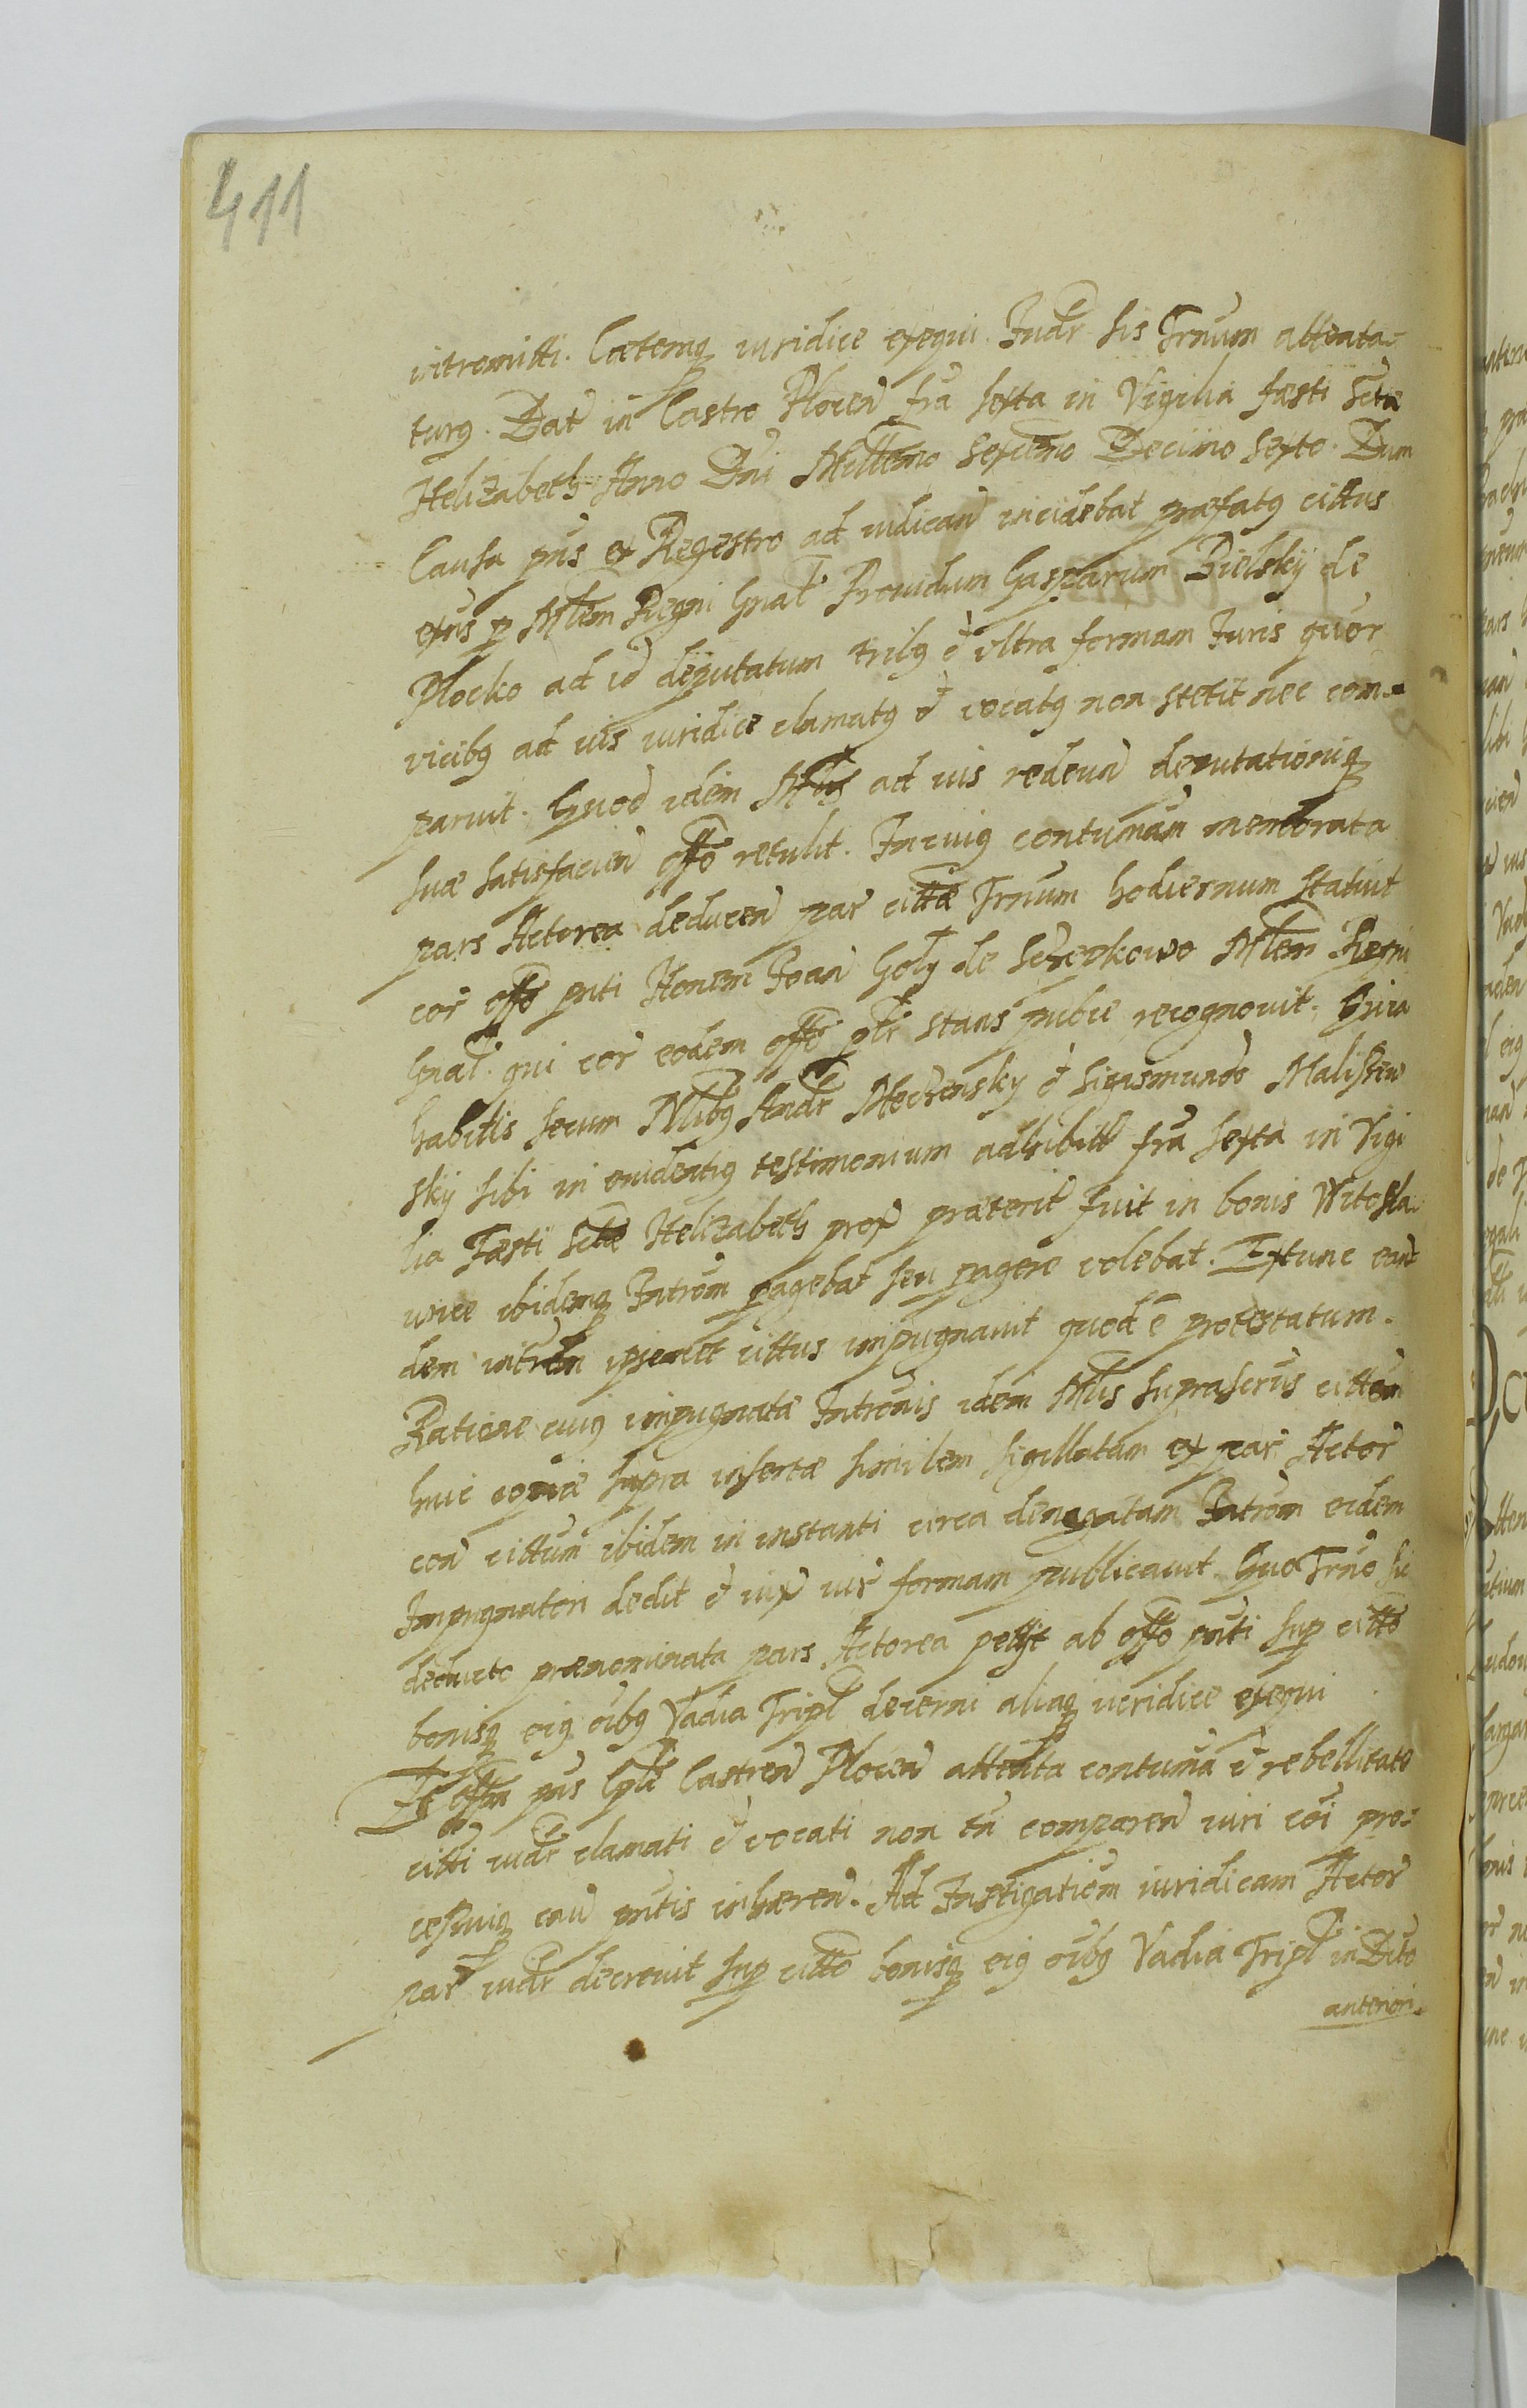 411
intromitti. Caetemq iuridice exequi. Iudr his Trnum attenta-
turg. Dat in Castro Plocen fra sexta in Vigilia fasti Sctae
Helizabeth Anno Dni Millemo Sexcemo Decimo Sexto. Dum
Causa pns ex Regestro ad iudicand incidebat praefatg cittus
exns p Mlem Regni Gnal Prouidum Gasparum Bielsky de
Plocko ad id deputatum tribg et ultra formam Iuris quor
vicibg ad ius iuridice clamatg et vocatg non stetit nec com-
paruit. Quod idem Mlis ad ius redeun deputationiq
suae satisfacien offo retulit. In cuig contumam memorata
pars Actorea deducen par cittae Trnum hodiernum statuit
cor offo pnti Honem Ioan Goly de Sczepkowo Mlem Regni
Gnal. qui cor eodem offo plr stans pubce recognouit. Quia
habitis secum Nlibg Andr Meczensky et Sigismundo Malissew
sky sibi in euidentig testimonium adhibitt fra sexta in Vigi
lia Faesti Sctae Helizabeth prox praeterit fuit in bonis Witosla-
wice ibidemq Introm pagebat seu pagere volebat. Extunc ean
dem intrem ipsemet cittus impugnauit quod e protestatum.
Ratione cuig impugnatae Intronis idem Mlis suprascrus cittem
huic copiae supra insertae similem sigillatam ex par Actor
con cittum ibidem in instanti circa denegatam Introm eidem
Impugnatori dedit et iux iur formam publicauit. Quo Trno si
deducto praenominata pars Actorea petyt ab offo pnti sup citto
bonisq eig oibg Vadia Tripl decerni aliaq iuridice exequi
Et offm pns Cple Castren Plocen attenta contuma et rebellitate
citti iudr clamati et vocati non tn comparen iuri coi pro-
cessuiq cau pntis inhaeren. Ad Instigatiom iuridicam Actor
par iudr decreuit sup citto bonisq eig oibg Vadia Tripl in Dito
anteriori-